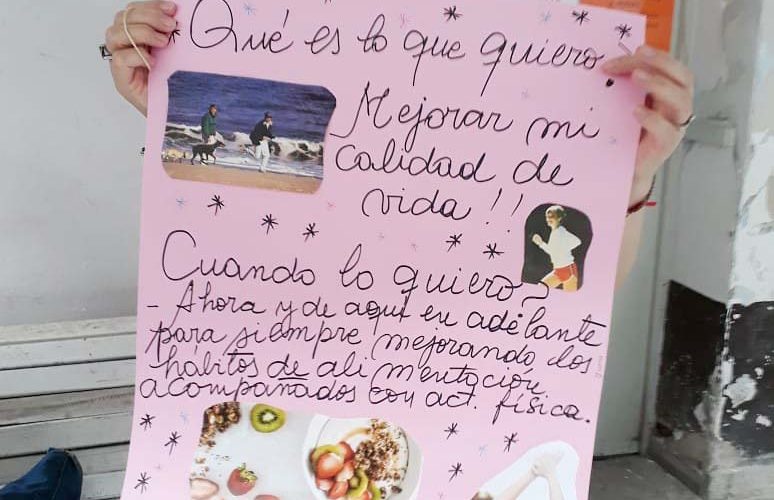 Qué es lo que quiero?
Mejorar mi
calidad de
vida!!
Cuando lo quiero?
- Ahora y de aquí en adelante
para siempre mejorando los
hábitos de alimentación
acompañados con act. física.